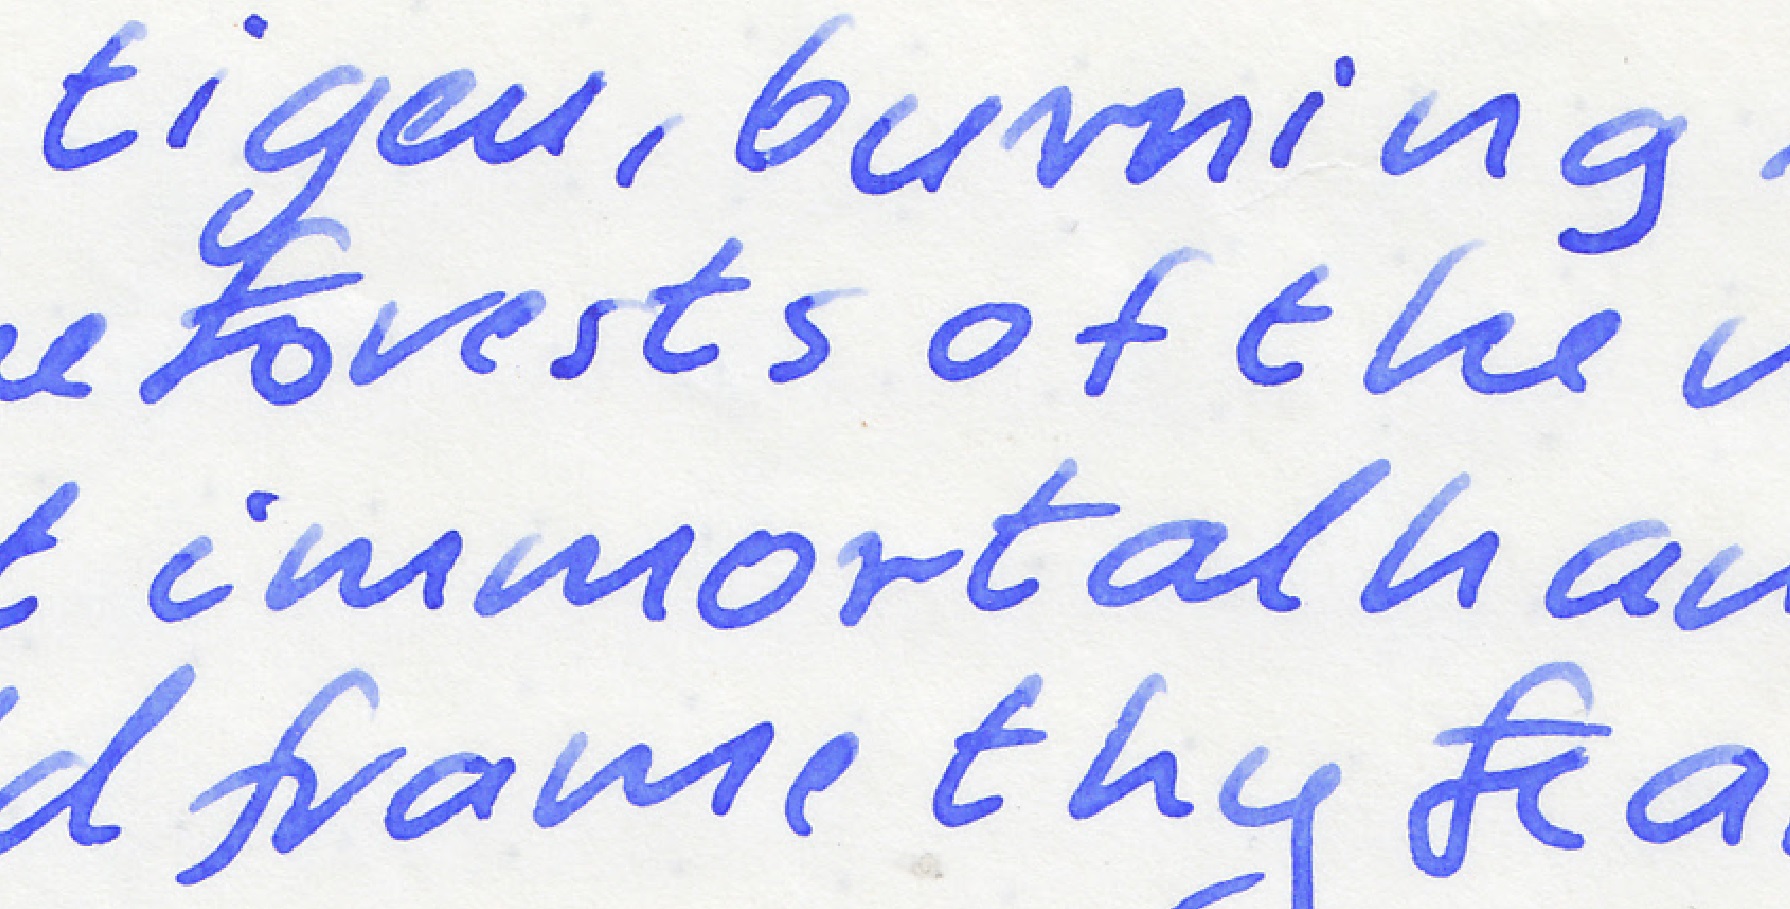 tiger, burning
he forests of the
t immortal han
d frame thy fea